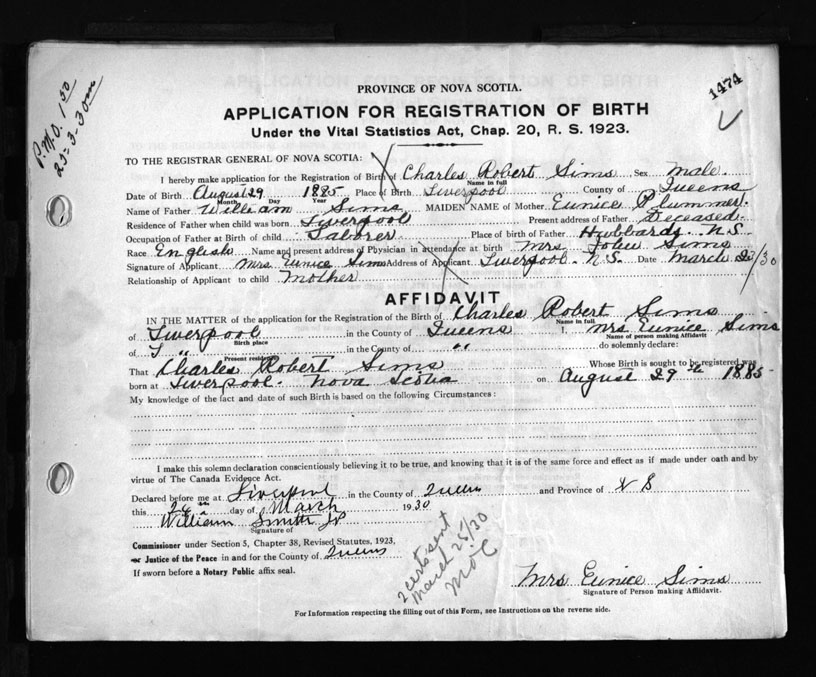 P.M.O. 1 50
25-3-30
1474
PROVINCE OF NOVA SCOTIA.
APPLICATION FOR REGISTRATION OF BIRTH
Under the Vital Statistics Act, Chap. 20, R. S. 1923.
TO THE REGISTRAR GENERAL OF NOVA SCOTIA:
I hereby make application for the Registration of Birth of Charles Robert Sims Sex male.
Name in full
Date of Birth August 29 1885 Place of Birth Liverpool County of Queens
Month Day Year
Name of Father William Sims MAIDEN NAME of Mother Eunice Plummer.
Residence of Father when child was born Liverpool Present address of Father Deceased.
Occupation of Father at Birth of child Laborer Place of birth of Father Hubbards. N.S.
Race English Name and present address of Physician in attendance at birth Mrs John Sims
Signature of Applicant Mrs Eunice Sims Address of Applicant Liverpool. N.S. Date March 23/30
Relationship of Applicant to child Mother
AFFIDAVIT
IN THE MATTER of the application for the Registration of the Birth of Charles Robert Sims
Name in full
of Liverpool in the County of Queens I, Mrs Eunice Sims
Birth place Name of person making Affidavit
of " in the County of " do solemnly declare:
Present residence
That Charles Robert Sims Whose Birth is sought to be registered was
born at Liverpool. Nova Scotia on August 29th 1885
My knowledge of the fact and date of such Birth is based on the following Circumstances:
I make this solemn declaration conscientiously believing it to be true, and knowing that it is of the same force and effect as if made under oath and by
virtue of The Canada Evidence Act.
Declared before me at Liverpool in the County of Queens and Province of N S
this 24th day of March 1930
William Smith JP
Signature of
Commissioner under Section 5, Chapter 38, Revised Statutes, 1923.
or Justice of the Peace in and for the County of Queens
If sworn before a Notary Public affix seal.
2 certs sent
March 25/30
Mrs Eunice Sims
Signature of Person making Affidavit.
For Information respecting the filling out of this Form, see Instructions on the reverse side.